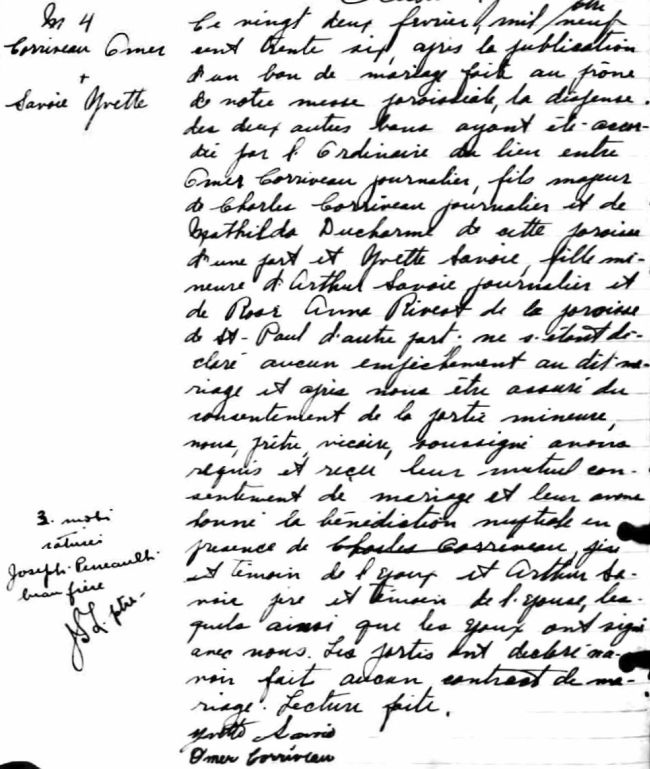 M 4
Corriveau Omer
+
Savoie Yvette
Ce vingt deux fevrier, mil neuf
cent trente six, après la publication
d'un ban de mariage faite au prône
de notre messe paroissiale, la dispense
des deux autres bans ayant été accor-
dée par l'Ordinaire du lieu entre
Omer Corriveau journalier, fils majeur
de Charles Corriveau journalier et de
Mathilda Ducharme de cette paroisse
d'une part et Yvette Savoie, fille mi-
neure d'Arthur Savoie journalier et
de Rose Anna Rivest de la paroisse
de St-Paul d'autre part; ne s'étant dé-
claré aucun empêchement au dit ma-
riage et après nous être assuré du
consentement de la partie mineure,
nous, prêtre, vicaire, soussigné avons
requis et reçu leur mutuel con-
sentement de mariage et leur avons
donné la bénédiction nuptiale en
présence de Charles Corriveau, père
et témoin de l'époux et Arthur Sa-
voie père et témoin de l'épouse, les-
quels ainsi que les époux ont signé
avec nous. Les parties ont déclaré n'a-
voir fait aucun contrat de ma-
riage. Lecture faite.
Yvette Savoie
Omer Corriveau
3. mots
raturés
Joseph Perreault
beau frère
ptre.